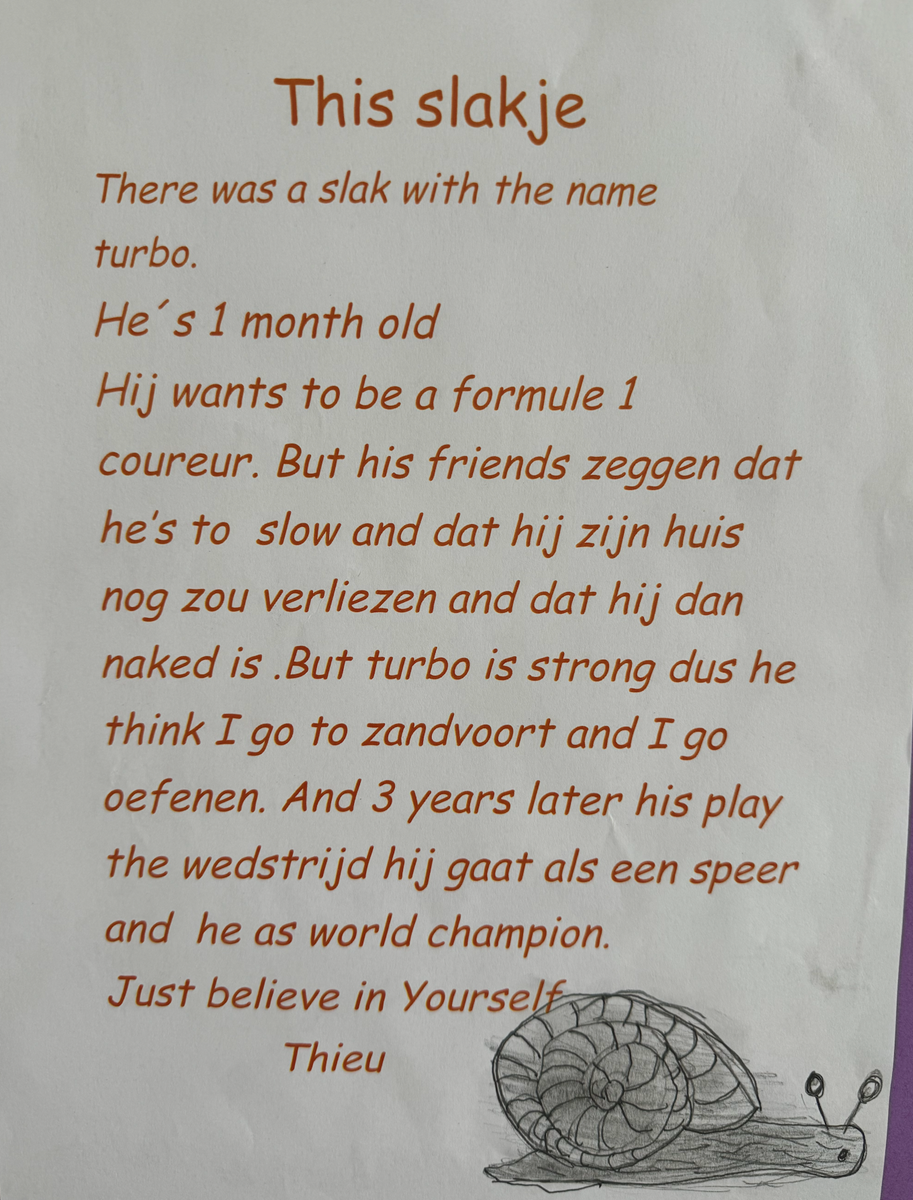 This slakje
There was a slak with the name
turbo.
He´s 1 month old
Hij wants to be a formule 1
coureur. But his friends zeggen dat
he's to  slow and dat hij zijn huis
nog zou verliezen and dat hij dan
naked is .But turbo is strong dus he
think I go to zandvoort and I go
oefenen. And 3 years later his play
the wedstrijd hij gaat als een speer
and  he as world champion.
Just believe in Yourself
Thieu